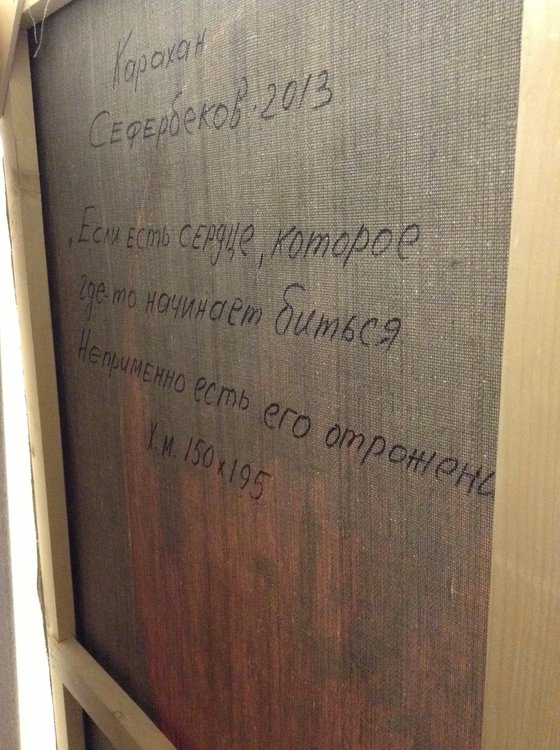 Карахан
Сефербеков. 2013
„Если есть сердце, которое
где-то начинает биться
Неприменно есть его отражени
Х.м. 150х195